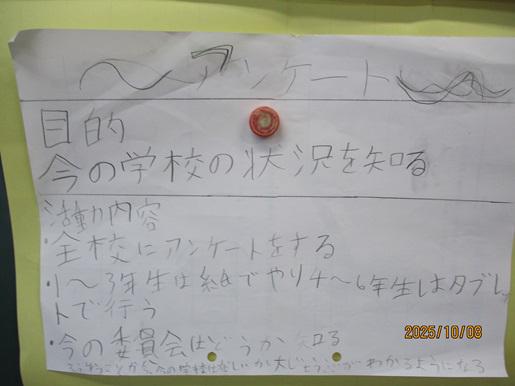 〜アンケート〜
目的
今の学校の状況を知る
活動内容
・全校にアンケートをする
・1〜3年生は紙でやり4〜6年生はタブレッ
トで行う
・今の委員会はどうか知る
今の学校は楽しいか
わかるようになる
2025/10/08